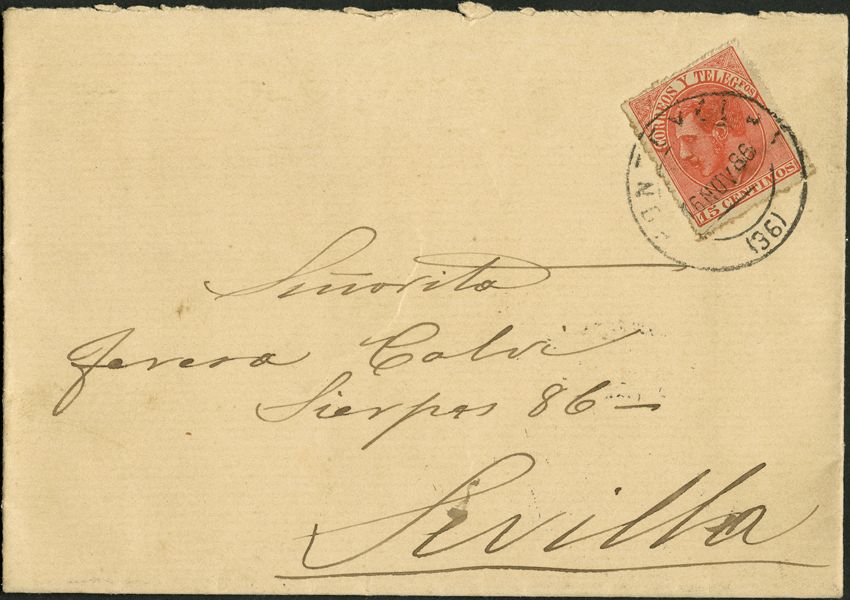 CORREOS Y TELEGFOS
6 NOV 86
15 CENTIMOS
(96)
Señorita
Teresa Calvi
Sierpes 86—
Sevilla